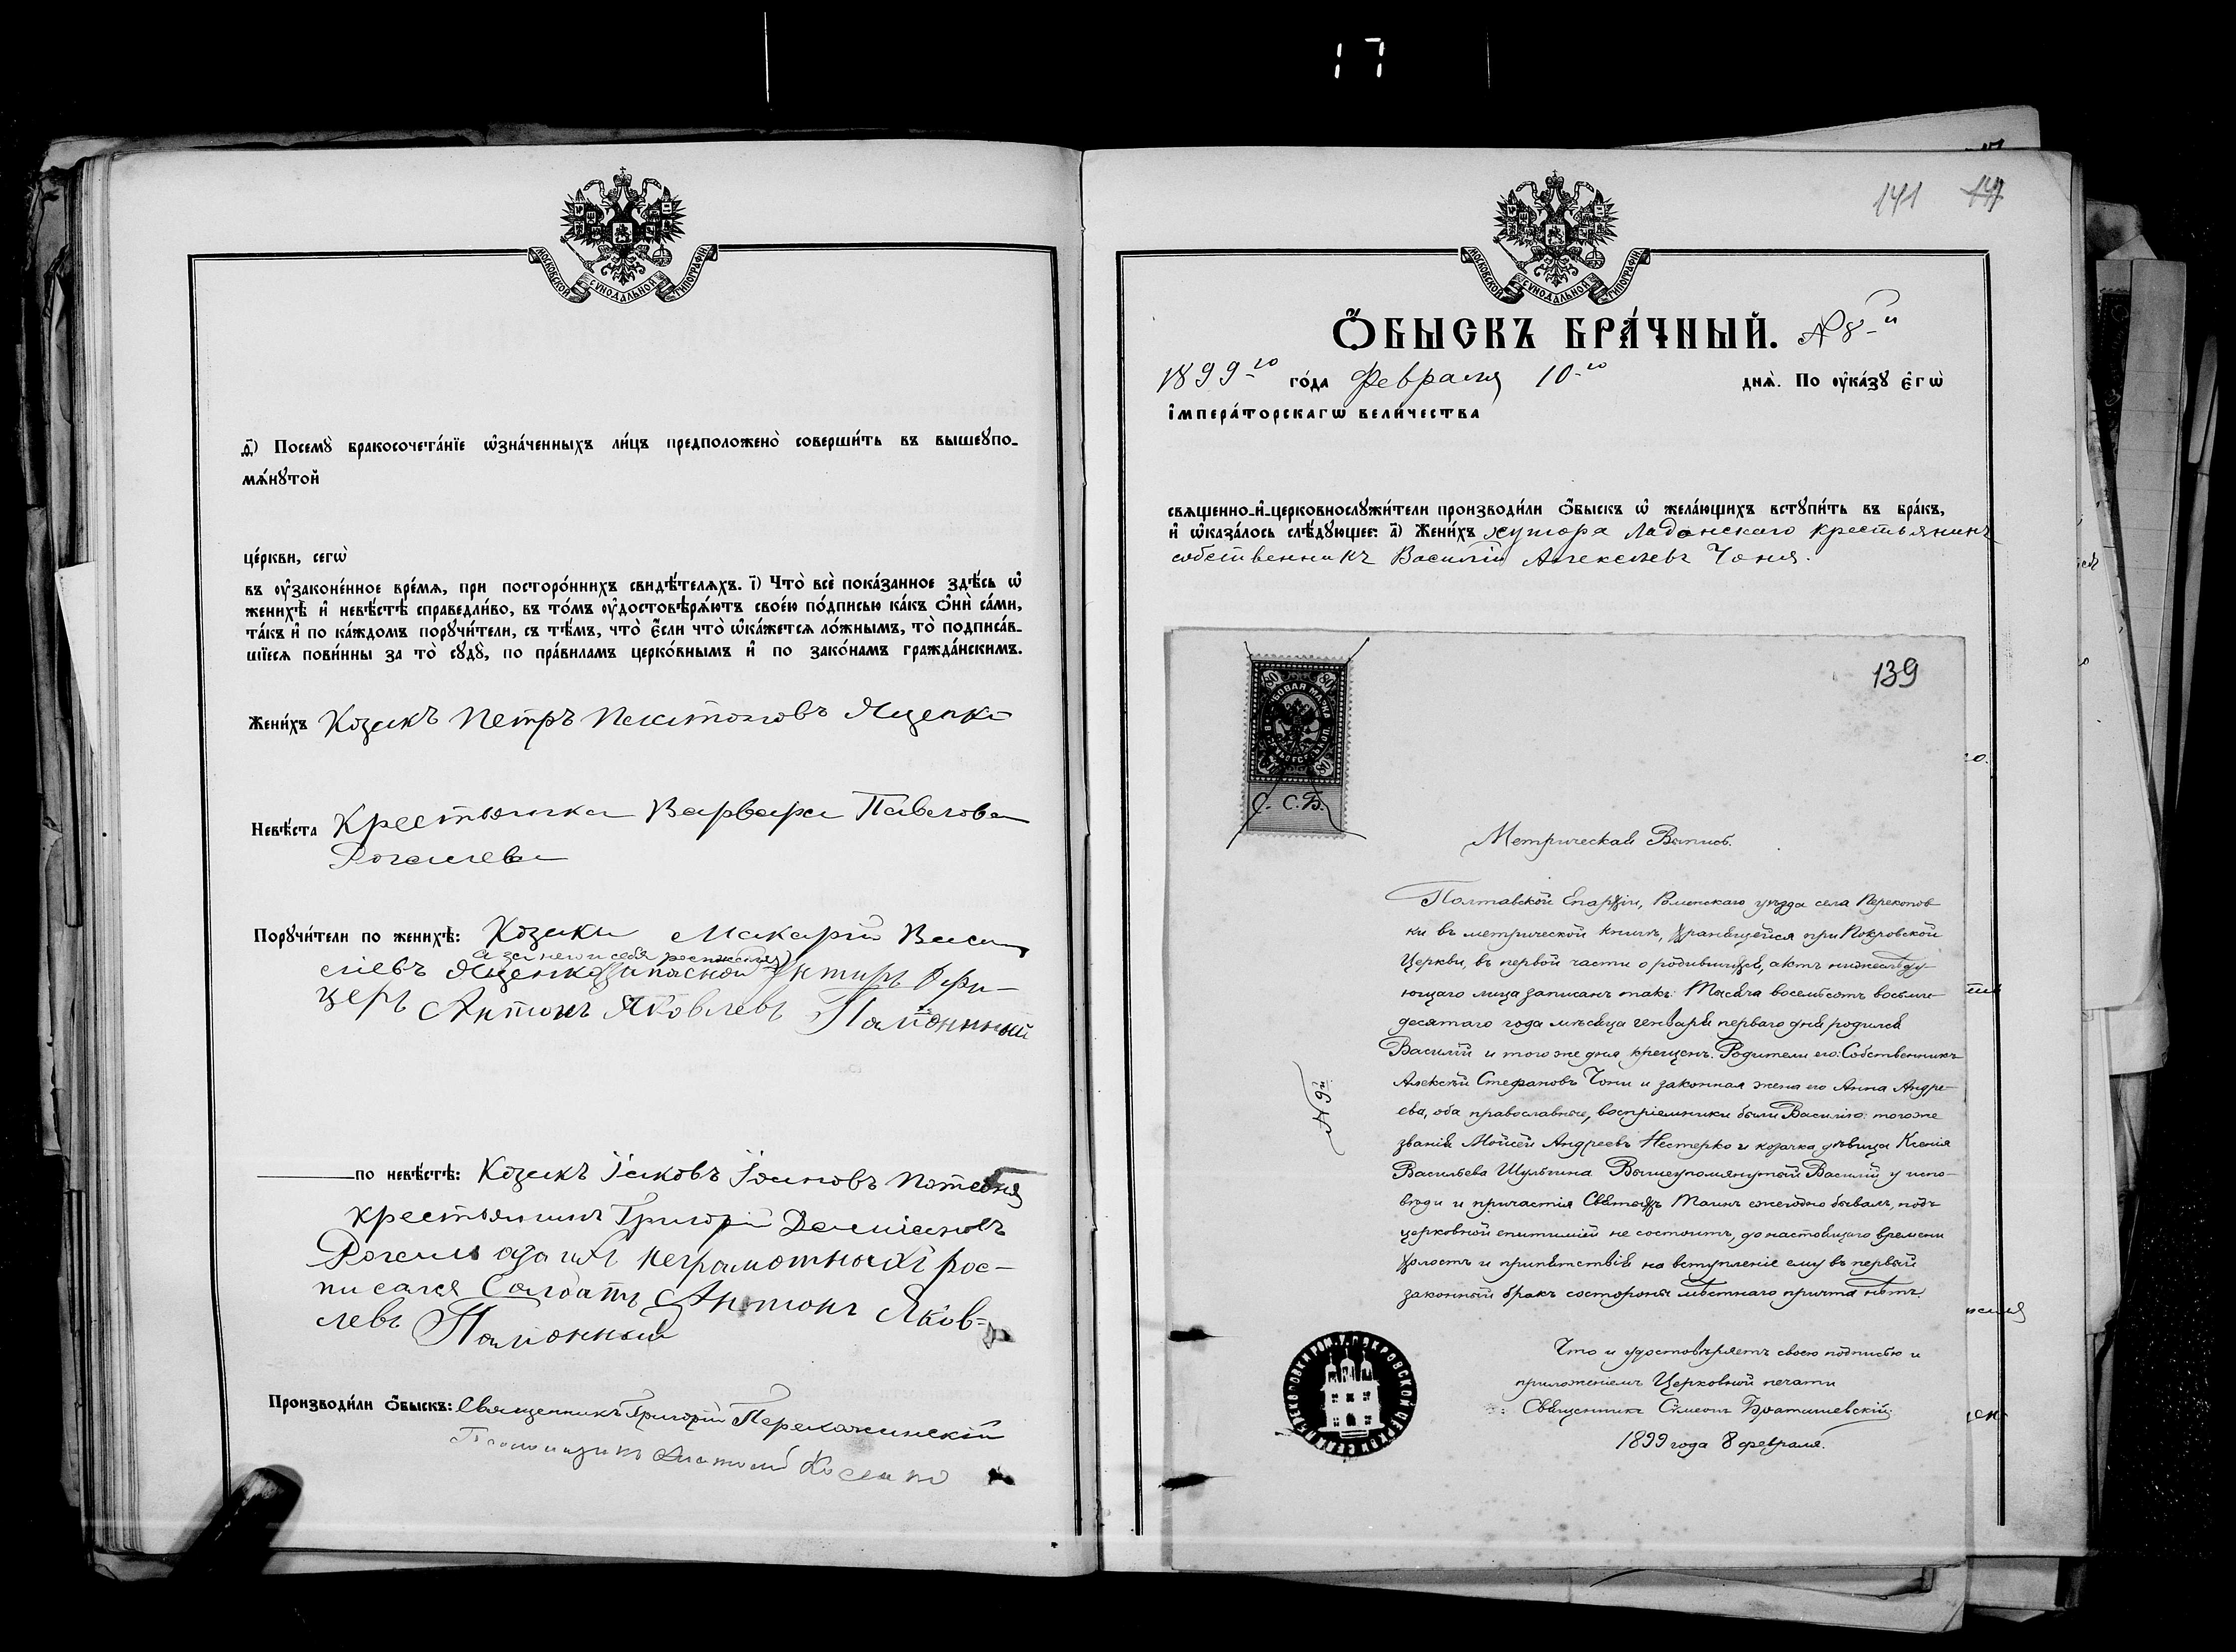 17
МОСКОВСКОЙ СѴНОДАЛЬНОЙ ТИПОГРАФІИ
д҃і) Посемꙋ̀ бракосочета́нїе ѡ҆зна́ченныхъ ли́цъ предположено̀ соверши́ть въ вышеꙋпо-
мѧ́нꙋтой
це́ркви, сегѡ̀
въ ᲂу҆законе́нное вре́мѧ, при посторо́ннихъ свидѣ́телѧхъ. і҃) Что̀ всѐ пока́занное здѣ́сь ѡ҆
женихѣ̀ и҆ невѣ́стѣ справедли́во, въ то́мъ ᲂу҆достовѣрѧ́ютъ свое́ю по́дписью ка́къ ѻ҆нѝ са́ми,
та́къ и҆ по ка́ждомъ порꙋчи́тели, съ тѣ́мъ, что̀ є҆́сли что̀ ѡ҆ка́жетсѧ ло́жнымъ, то̀ подписа́в-
шїесѧ пови́нны за то̀ сꙋдꙋ̀, по пра́виламъ церко́внымъ и҆ по зако́намъ гражда́нскимъ.
Жени́хъ Козакъ Петръ Яценко
Невѣ́ста Крестьянка Варвара Павлова
Рогалева
Порꙋчи́тели по женихѣ̀: Козаки Макарій Васи
а за него и себя росписался
лиевъ Яценко запасной Унтиръ Офи-
церъ Антонъ Яковлевъ
по невѣ́стѣ: Козакъ Іаковъ Іоановъ Потебня
крестьянинъ Григорій Даміановъ
Рогаль а за ихъ неграмотныхъ рос-
писался Солдатъ Антонъ Яков-
левъ
Производи́ли ѻ҆́быскъ: Священникъ Григорій
Псаломщикъ Анатолій
141
МОСКОВСКОЙ СѴНОДАЛЬНОЙ ТИПОГРАФІИ
Ѻ҆́БЫСКЪ БРА́ЧНЫЙ. № 8-й
1899-го го́да Февраля 10-го днѧ̀. По ᲂу҆ка́зꙋ є҆гѡ̀
і҆мпера́торскагѡ вели́чества
свѧщенно-и҆-церковнослꙋжи́тели производи́ли ѻ҆́быскъ ѡ҆ жела́ющихъ встꙋпи́ть въ бра́къ,
и҆ ѡ҆каза́лось слѣ́дꙋющее: а҃) Жени́хъ хутора Ладонского крестьянинъ
собственникъ Василій Алексѣевъ Чоня.
139
80 80
ГЕРБОВАЯ МАРКА
80 80
С. С. Б.
Метрическая Выпись.
Полтавской Епархіи, Роменскаго уѣзда села Перекопов
ки въ метрической книгѣ, хранящейся при Покровской
Церкви, въ первой части о родившихся, актъ нижеслѣду-
ющаго лица записанъ такъ: Тысяча восемьсотъ восьми-
десятаго года мѣсяца генваря перваго дня родился
Василій и того же дня крещенъ. Родители его: Собственникъ
Алексѣй Стефановъ Чони и законная жена его Анна Андре-
ева, оба православные, воспріемники были Василію: того же
званія Моисей Андреевъ Нестерко и козачка дѣвица Ксенія
Васильева Шульгина. Вышеупомянутый Василій у испо-
вѣди и причастія Святыхъ Таинъ ежегодно бывалъ, подъ
церковной епитиміей не состоитъ, до настоящаго времени
холостъ и припятствій на вступленіе ему въ первый
законный бракъ состороны мѣстнаго причта нѣтъ.
№ 9й
Что и удостовѣряетъ своею подписью и
приложеніемъ Церковной печати
Священникъ Сѵмеонъ Братишевскій
1899 года 8 февраля.